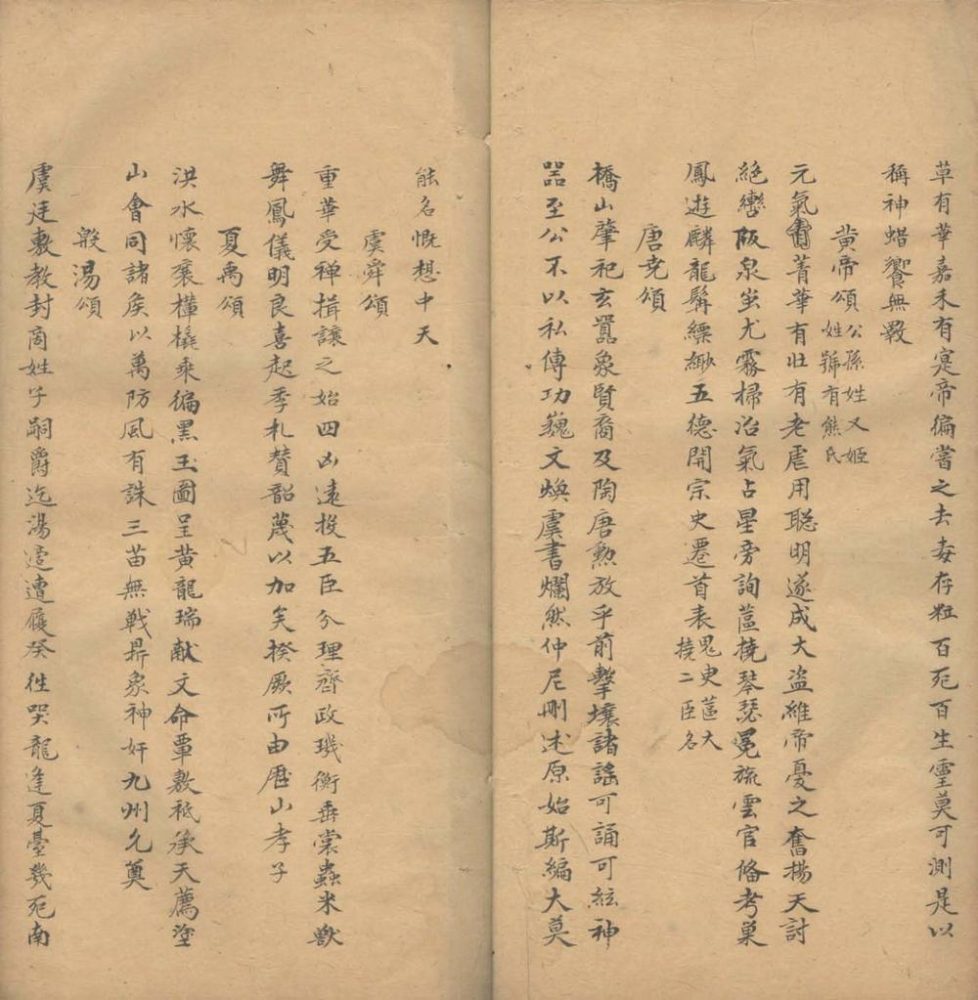 草有華嘉禾有寔帝徧嘗之去毒存粒百死百生靈莫可測是以
稱神蜡饗無斁
黃帝頌 公孫姓又姬
姓號有熊氏
元氣菁華有壯有老虐用聪明遂成大盗維帝憂之奮揚天討
絶轡阪泉蚩尤霧掃冶氣占星旁詢蓲橈琴瑟冕旒雲官俻考巢
鳳遊麟龍髯縹緲五德開宗史遷首表 鬼史蓲大
橈二臣名
唐尭頌
橋山肇祀玄囂象賢裔及陶唐勲放乎前擊壤諸謡可誦可絃神
噐至公不以私傳功巍文煥虞書爛然仲尼刪述原始斯編大莫
能名慨想中天
虞舜頌
重華受禅揖讓之始四凶遠投五臣分理齊政璣衡垂裳蟲米獸
舞鳳儀明良喜起季札賛韶蔑以加矣揆厥所由厯山孝子
夏禹頌
洪水懷襄欙橇乘徧黑玉圖呈黄龍瑞献文命覃敷祗承天薦塗
山會同諸矦以萬防風有誅三苗無戰鼎象神奸九州允奠
殷湯頌
虞廷敷教封商姓子嗣爵迄湯遭履癸徃哭龍逢夏臺幾死南